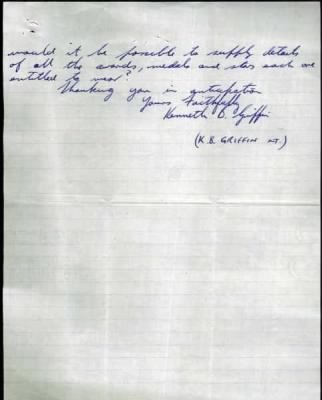 would it be possible to supply details
of all the awards, medals and stars each one
entitled to wear?
Thanking you in anticipation
Yours Faithfully
Kenneth B. Griffin
(K.B. GRIFFIN